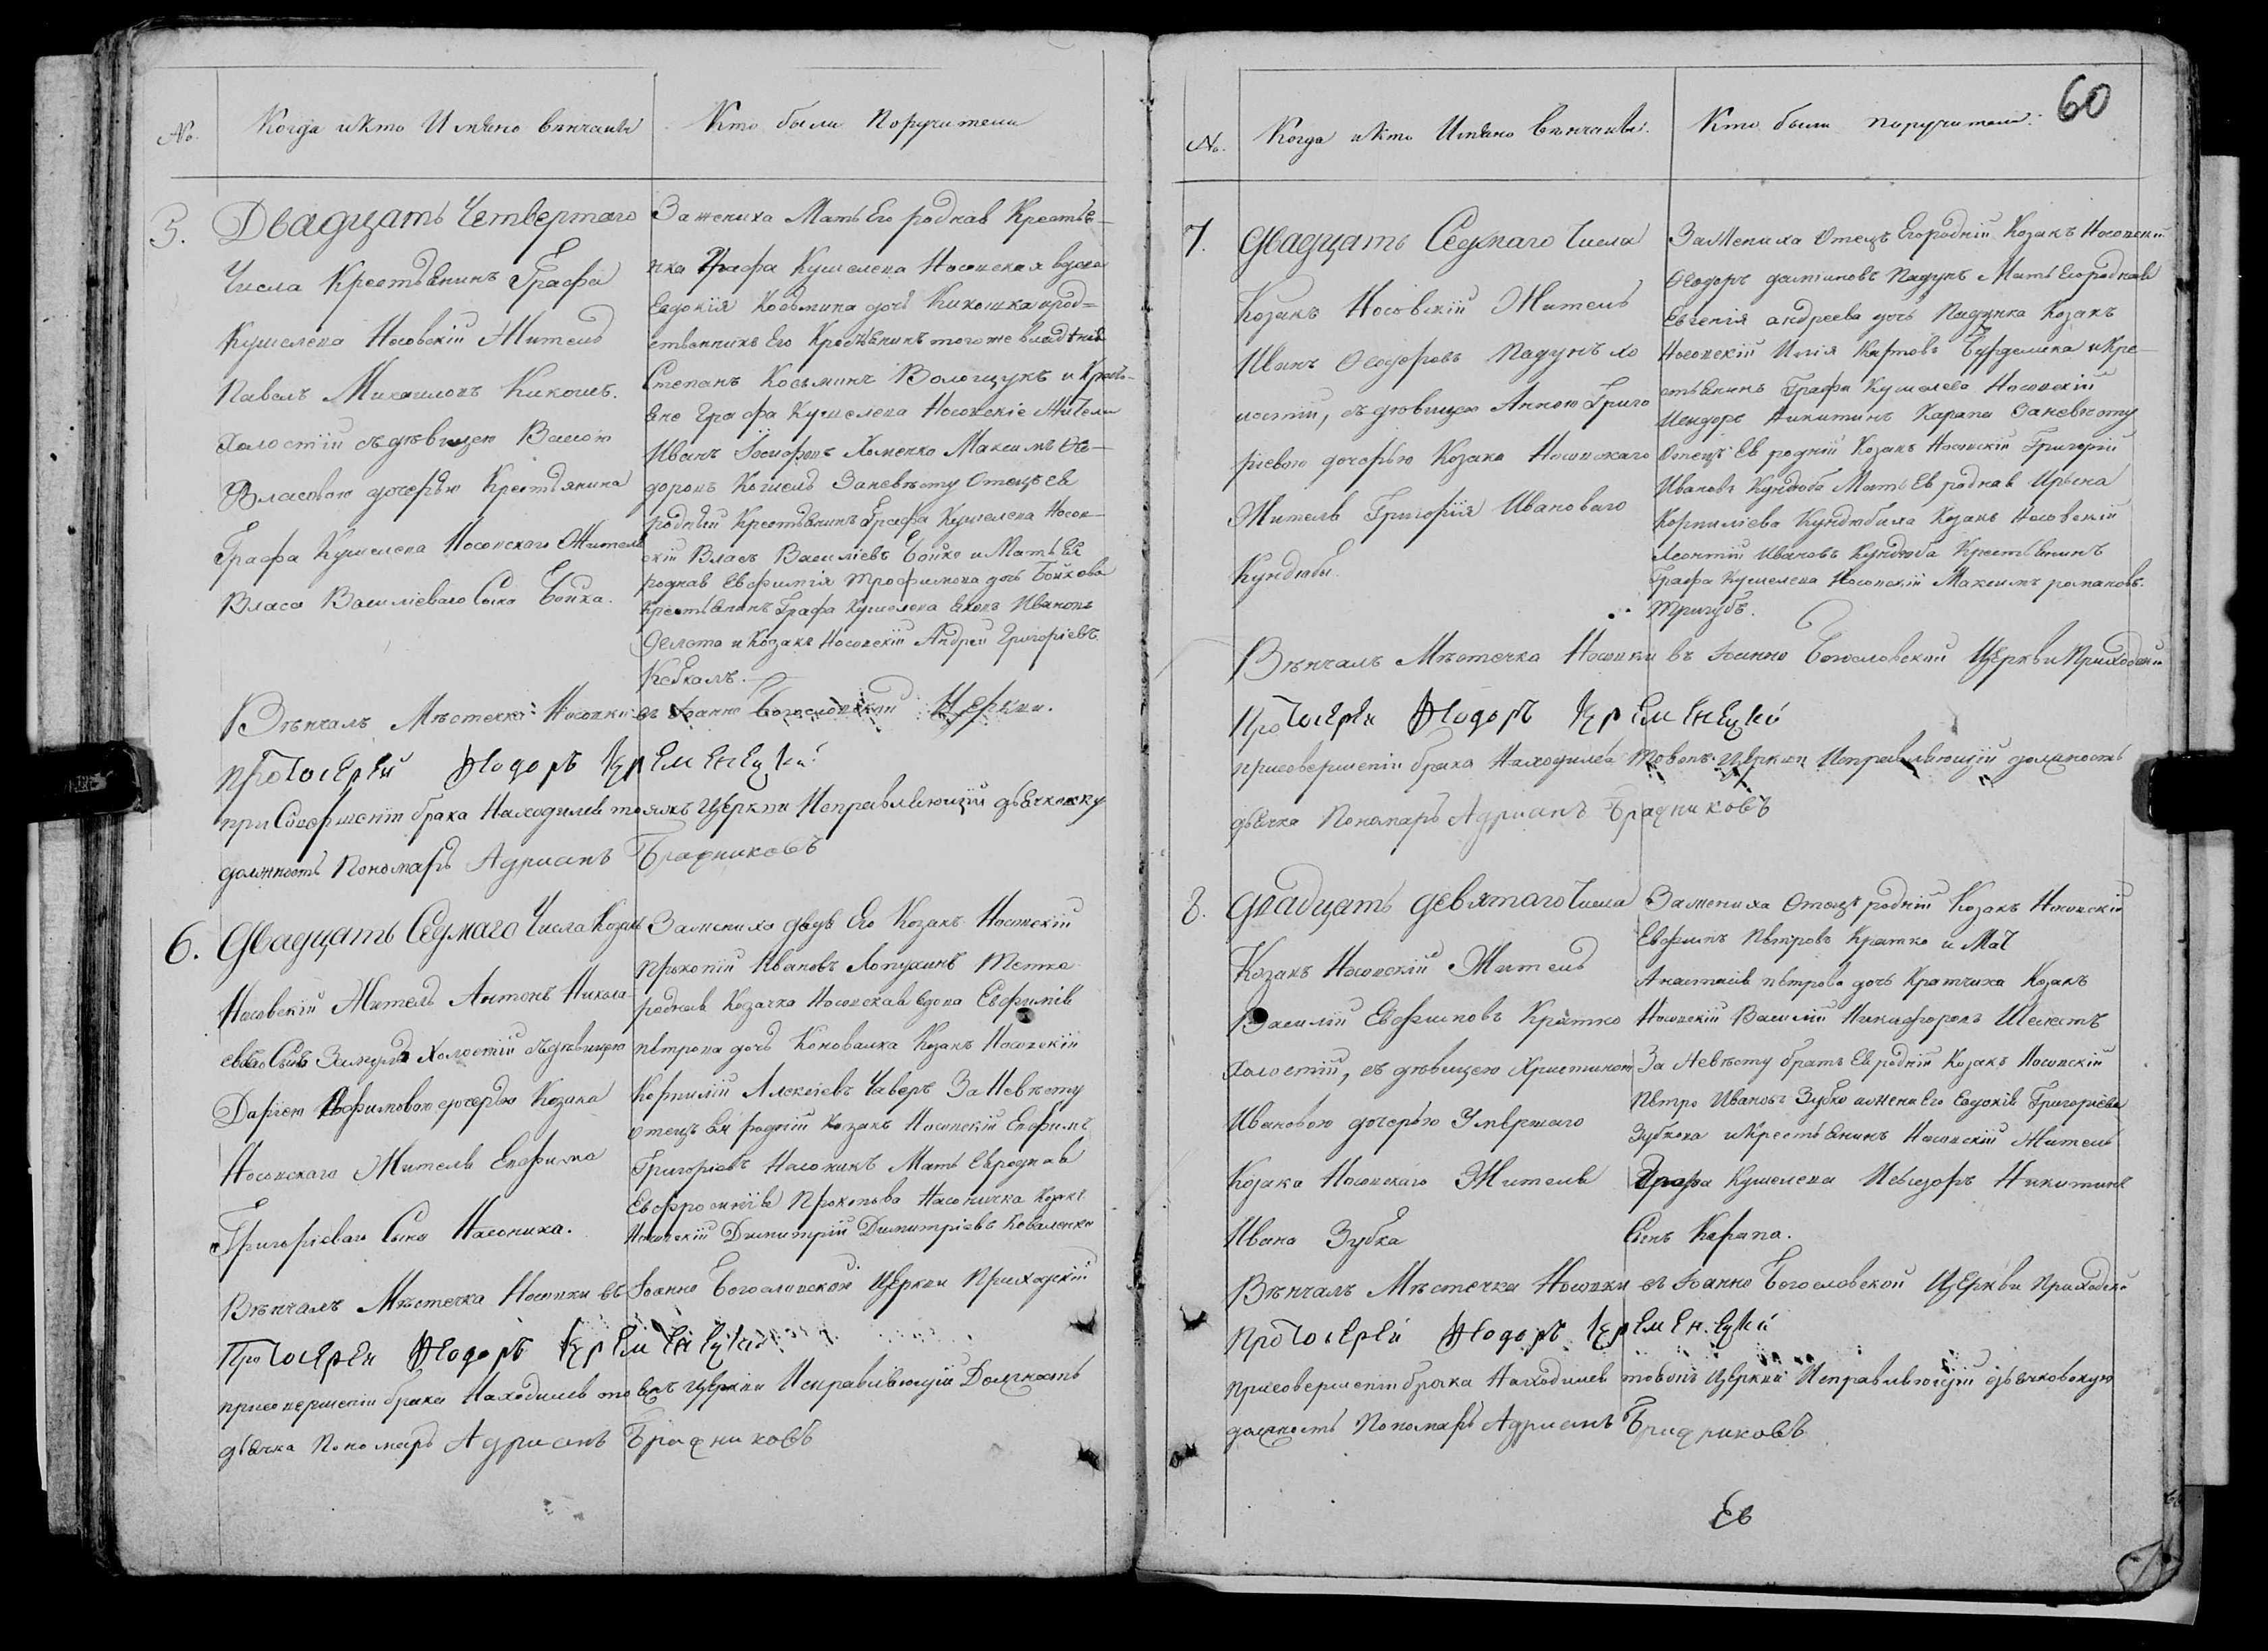 №.
Когда и Кто Имѣно вѣнчаны
Кто были Поручители
5.
Двадцать Четвертаго
Числа Крестьянинъ Графа
Кушелева Носовскій Житель
Павелъ Михаиловъ Кикошъ.
Холостій съ дѣвицею
Власовою дочерью Крестьянина
Графа Кушелева Носовскаго Жителя
Власа Василіеваго Сына Бойка.
За жениха Мать Его родная Крестья-
нка Графа Кушелева Носовская вдова
Евдокія Косьмина дочь Кикошка срод-
ственникъ Его Крестьянинъ того же владѣнія
Степанъ Косьминъ Волощукъ и Крестья-
не Графа Кушелева Носовскіе Жители
Иванъ Іосифовъ Хоменко Максимъ Ѳео-
доровъ Кошель За невѣсту Отецъ ея
родный Крестьянинъ Графа Кушелева Носов-
скій Власъ Василіевъ Бойко и Мать Ея
родная Евфимія Трофимова дочь Бойкова
Крестьянинъ Графа Кушелева Иванъ
и Козакъ Носовскій Андрей Григоріевъ
Вѣнчалъ Мѣстечка Носовки въ Іоанно Богословской Церкви.
Протоіерей Ѳеодоръ Кременецкій
при Совершеніи брака Находился тоя жъ Церкви Исправляющій дьячковску
должность Пономарь Адріанъ Брадниковъ
6.
Двадцать Седмаго Числа Козакъ
Носовскій Житель Антонъ Никола-
евъ Сынъ Холостій съ дѣвицею
Даріею Евфимовою дочерью Козака
Носовскаго Жителя Евфима
Григоріеваго Сына Насоника.
За жениха дядя Его Козакъ Носовскій
Прокопій Ивановъ Лопухинъ Тетка
родная Козачка Носовская вдова Евфимія
Петрова дочь Коновалка Козакъ Носовскій
Корнилій Алексіевъ Чаверъ За Невѣсту
Отецъ Ея родній Козакъ Носовскій Евфимъ
Григоріевъ Насоникъ Мать Ея родная
Евфросинія Прокопьева Насоничка Козакъ
Носовскій Димитрій Димитріевъ Коваленко
Вѣнчалъ Мѣстечка Носовки въ Іоанно Богословской Церкви Приходскій
Протоіерей Ѳеодоръ Кременецкій
при совершеніи брака Находился тоя жъ Церкви Исправляющій Должность
дьячка Пономарь Адріанъ Брадниковъ
60
№.
Когда и Кто Имѣно вѣнчаны.
Кто были поручители.
7.
Двадцать Седмаго Числа
Козакъ Носовскій Житель
Иванъ Ѳеодоровъ Падунъ хо
лостій, съ дѣвицею Анною Григо
ріевою дочерью Козака Носовскаго
Жителя Григорія Ивановаго
Кундюбы.
За Жениха Отецъ Его родній Козакъ Носовскій
Ѳеодоръ Падунъ Мать Его родная
Евгенія Андреева дочь Падунка Козакъ
Носовскій Илія Карповъ и Кре-
стьянинъ Графа Кушелева Носовскій
Никитинъ Карапа За невѣсту
Отецъ Ея родній Козакъ Носовскій Григорій
Ивановъ Кундюба Мать Ея родная Ирына
Корниліева Кундюбина Козакъ Носовскій
Леонтій Ивановъ Кундюба Крестьянинъ
Графа Кушелева Носовскій Максимъ романовъ
Тригубъ.
Вѣнчалъ Мѣстечка Носовки въ Іоанно Богословской Церкви Приходскій
Протоіерей Ѳеодоръ Кременецкій
при совершеніи брака Находился Церкви Исправляющій должность
дьячка Пономарь Адріанъ Брадниковъ
8.
Двадцать девятаго Числа
Козакъ Носовскій Житель
Василій Евфимовъ Кратко
Холостій, съ дѣвицею Христиною
Ивановою дочерью Умершаго
Козака Носовскаго Жителя
Ивана Зубка
За жениха Отецъ родній Козакъ Носовскій
Евфимъ Петровъ Кратко и Мат
Анастасія Петрова дочь Кратчиха Козакъ
Носовскій Василій Никифоровъ Шелестъ
За Невѣсту братъ Ея родній Козакъ Носовскій
Петро Ивановъ Зубко и жена Его Евдокія Григоріева
Зубкова и Крестьянинъ Носовскій Житель
Графа Кушелева Никитинъ
Сынъ Карапа.
Вѣнчалъ Мѣстечка Носовки въ Іоанно Богословской Церкви Приходскій
Протоіерей Ѳеодоръ Кременецкій
при совершеніи брака Находился Церкви Исправляющій дьячковскую
должность Пономарь Адріанъ Брадниковъ